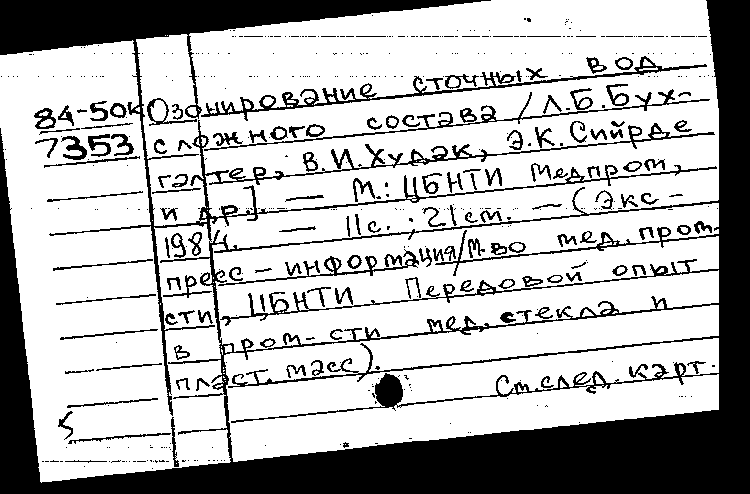 84-50к Озонирование сточных вод
7353 сложного состава / Л.Б. Бух-
галтер, В.И. Худак, Э.К. Сийрде
и др.]. — М.: ЦБНТИ Медпром,
1984. — 11с. ; 21 см. — (Экс-
пресс-информация / М-во мед. пром-
сти, ЦБНТИ. Передовой опыт
в пром-сти мед. стекла и
пласт. масс).
См. след. карт.
5